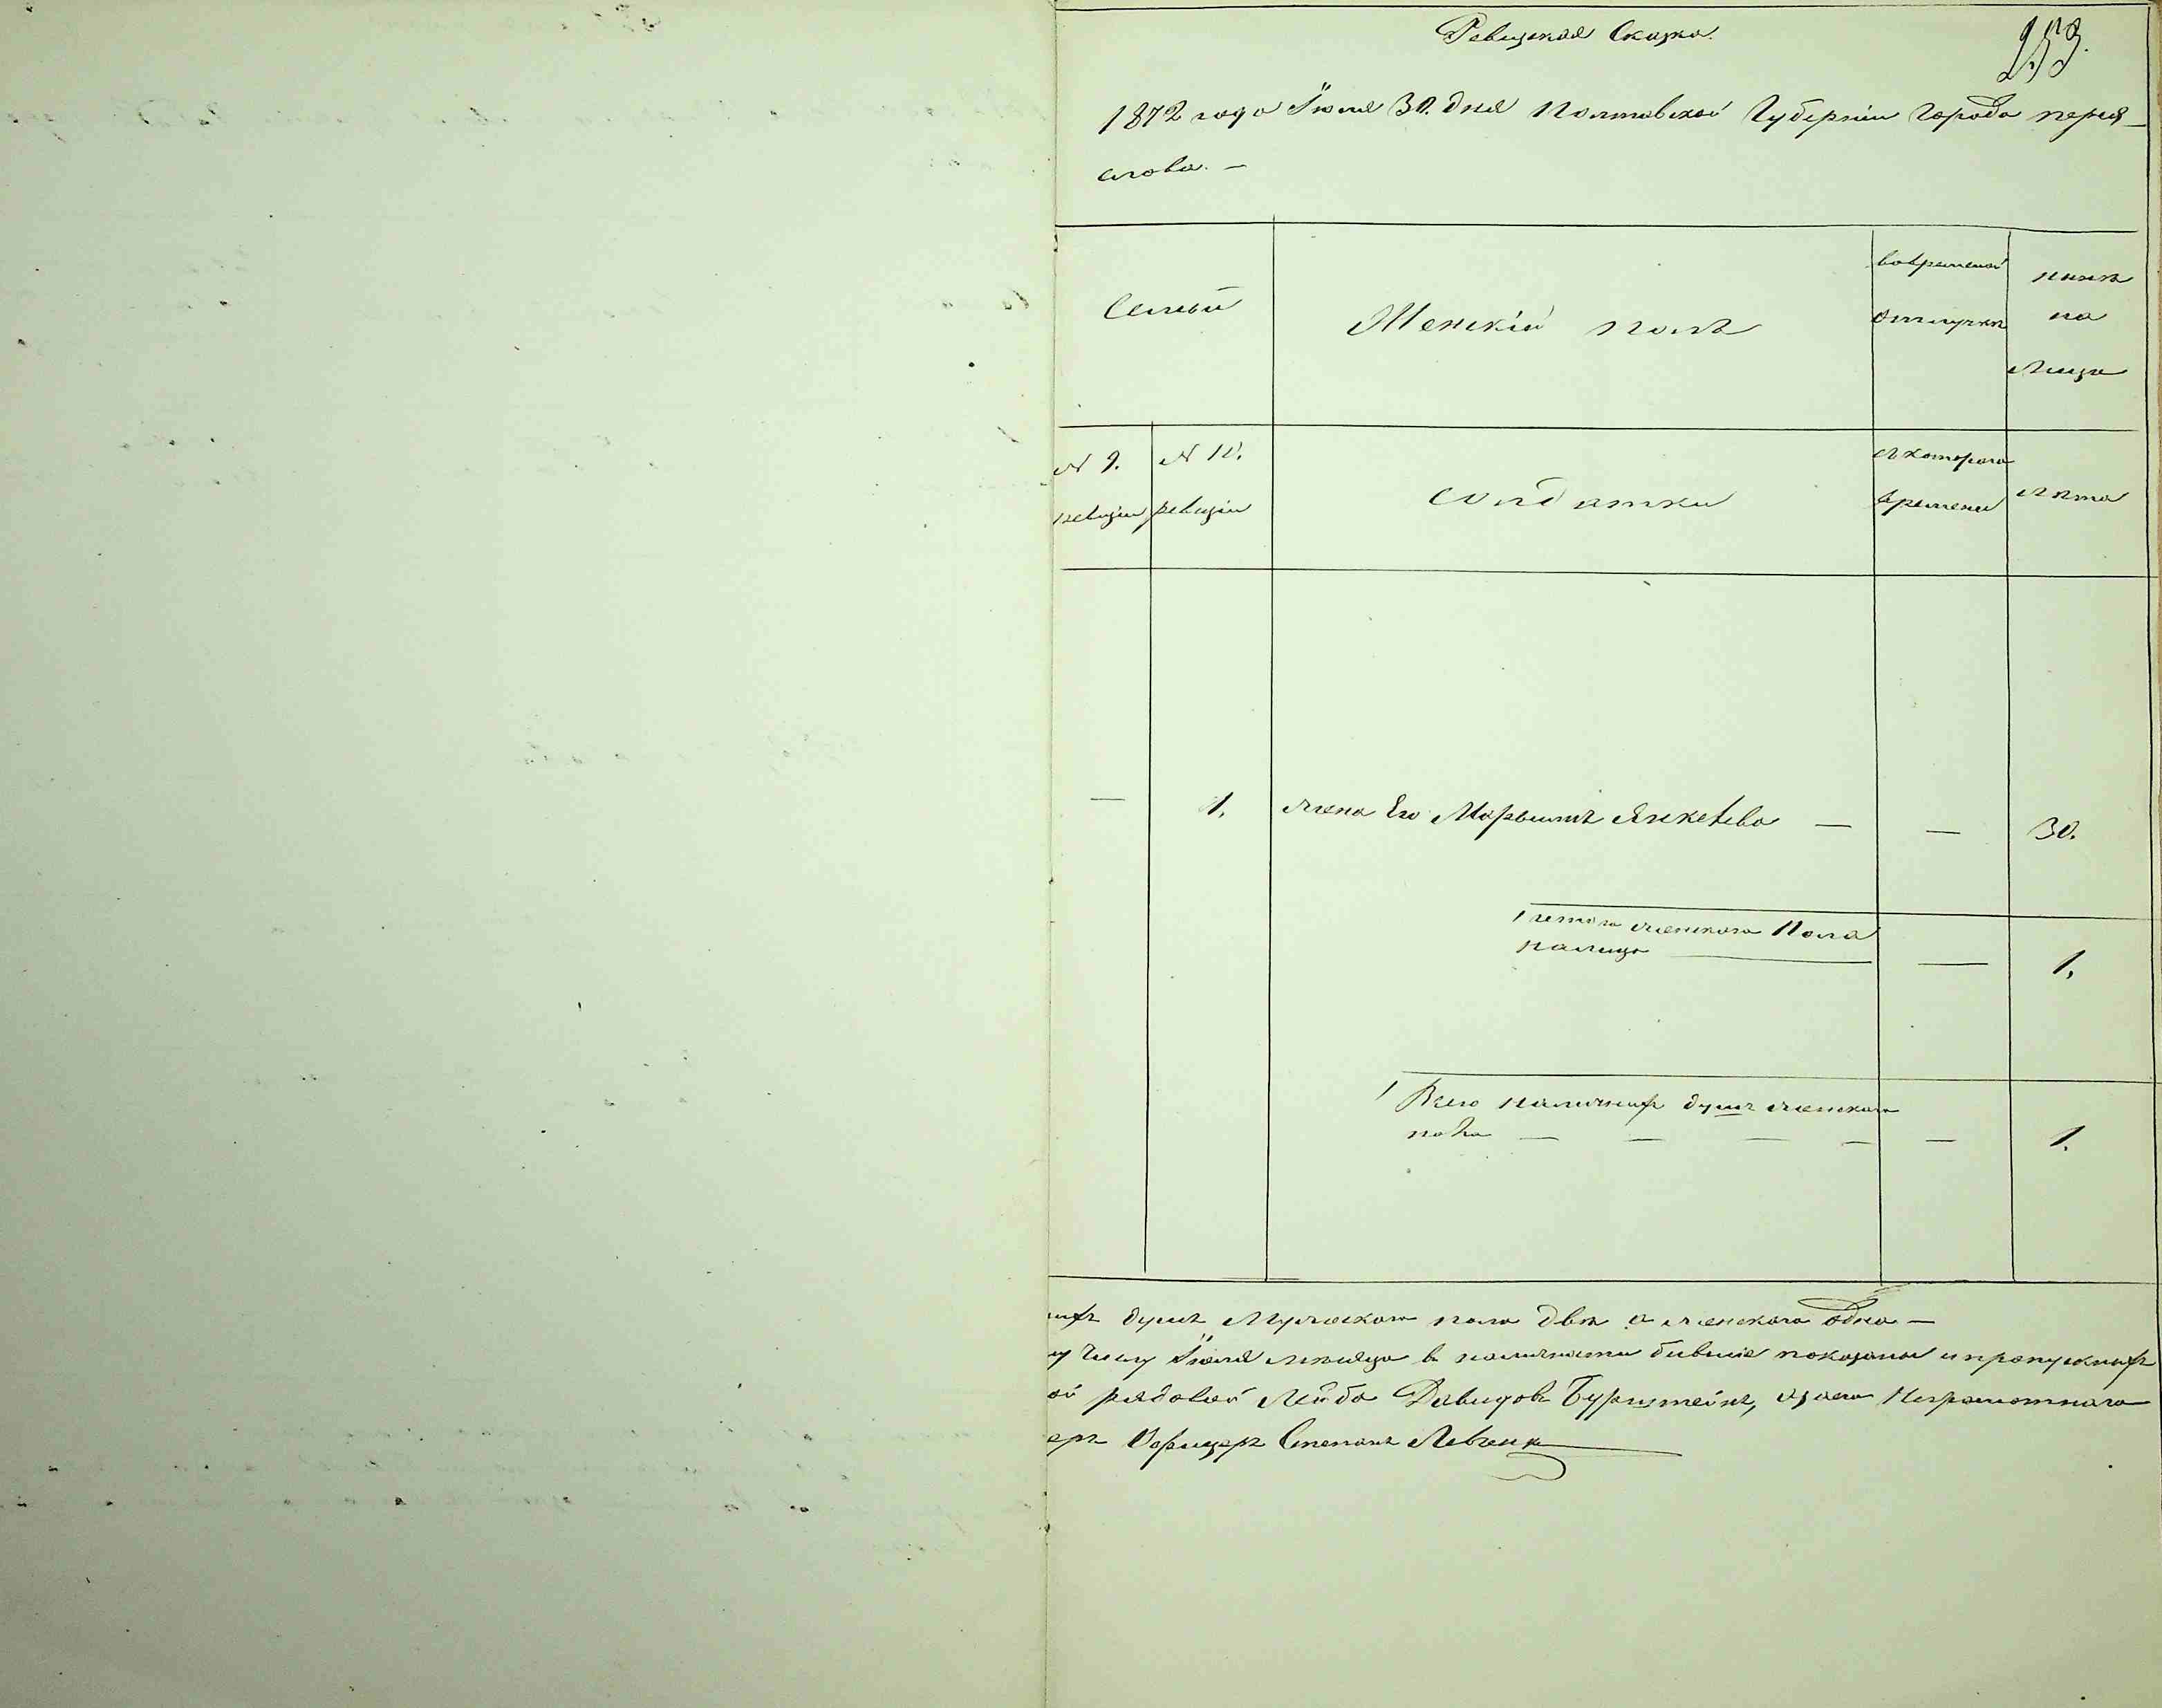 Ревизская Сказка.
253.
1872 года Іюля 30. дня Полтавской Губерніи Города перея-
слова. —
Семьи
Женскій полъ
вовременой
отлучкѣ
нынѣ
на
лицо
N 9.
ревизіи
N 10.
ревизіи
солдатки
скотораго
времени
лѣта
— 1. жена Его Марьишъ Янкелева — — 30.
женскаго Пола
налицо — 1.
Всего наличныхъ душъ женскаго
пола — — — — — 1.
ыхъ душъ Мужескаго пола двѣ а женскаго одна —
у числу Іюля мѣсяца в наличности бывшіе показаны и пропускныхъ
ой рядовой Лейба Давидовъ Бурштейнъ, азаего Неграмотнаго
еръ Офицеръ Степанъ Левченк